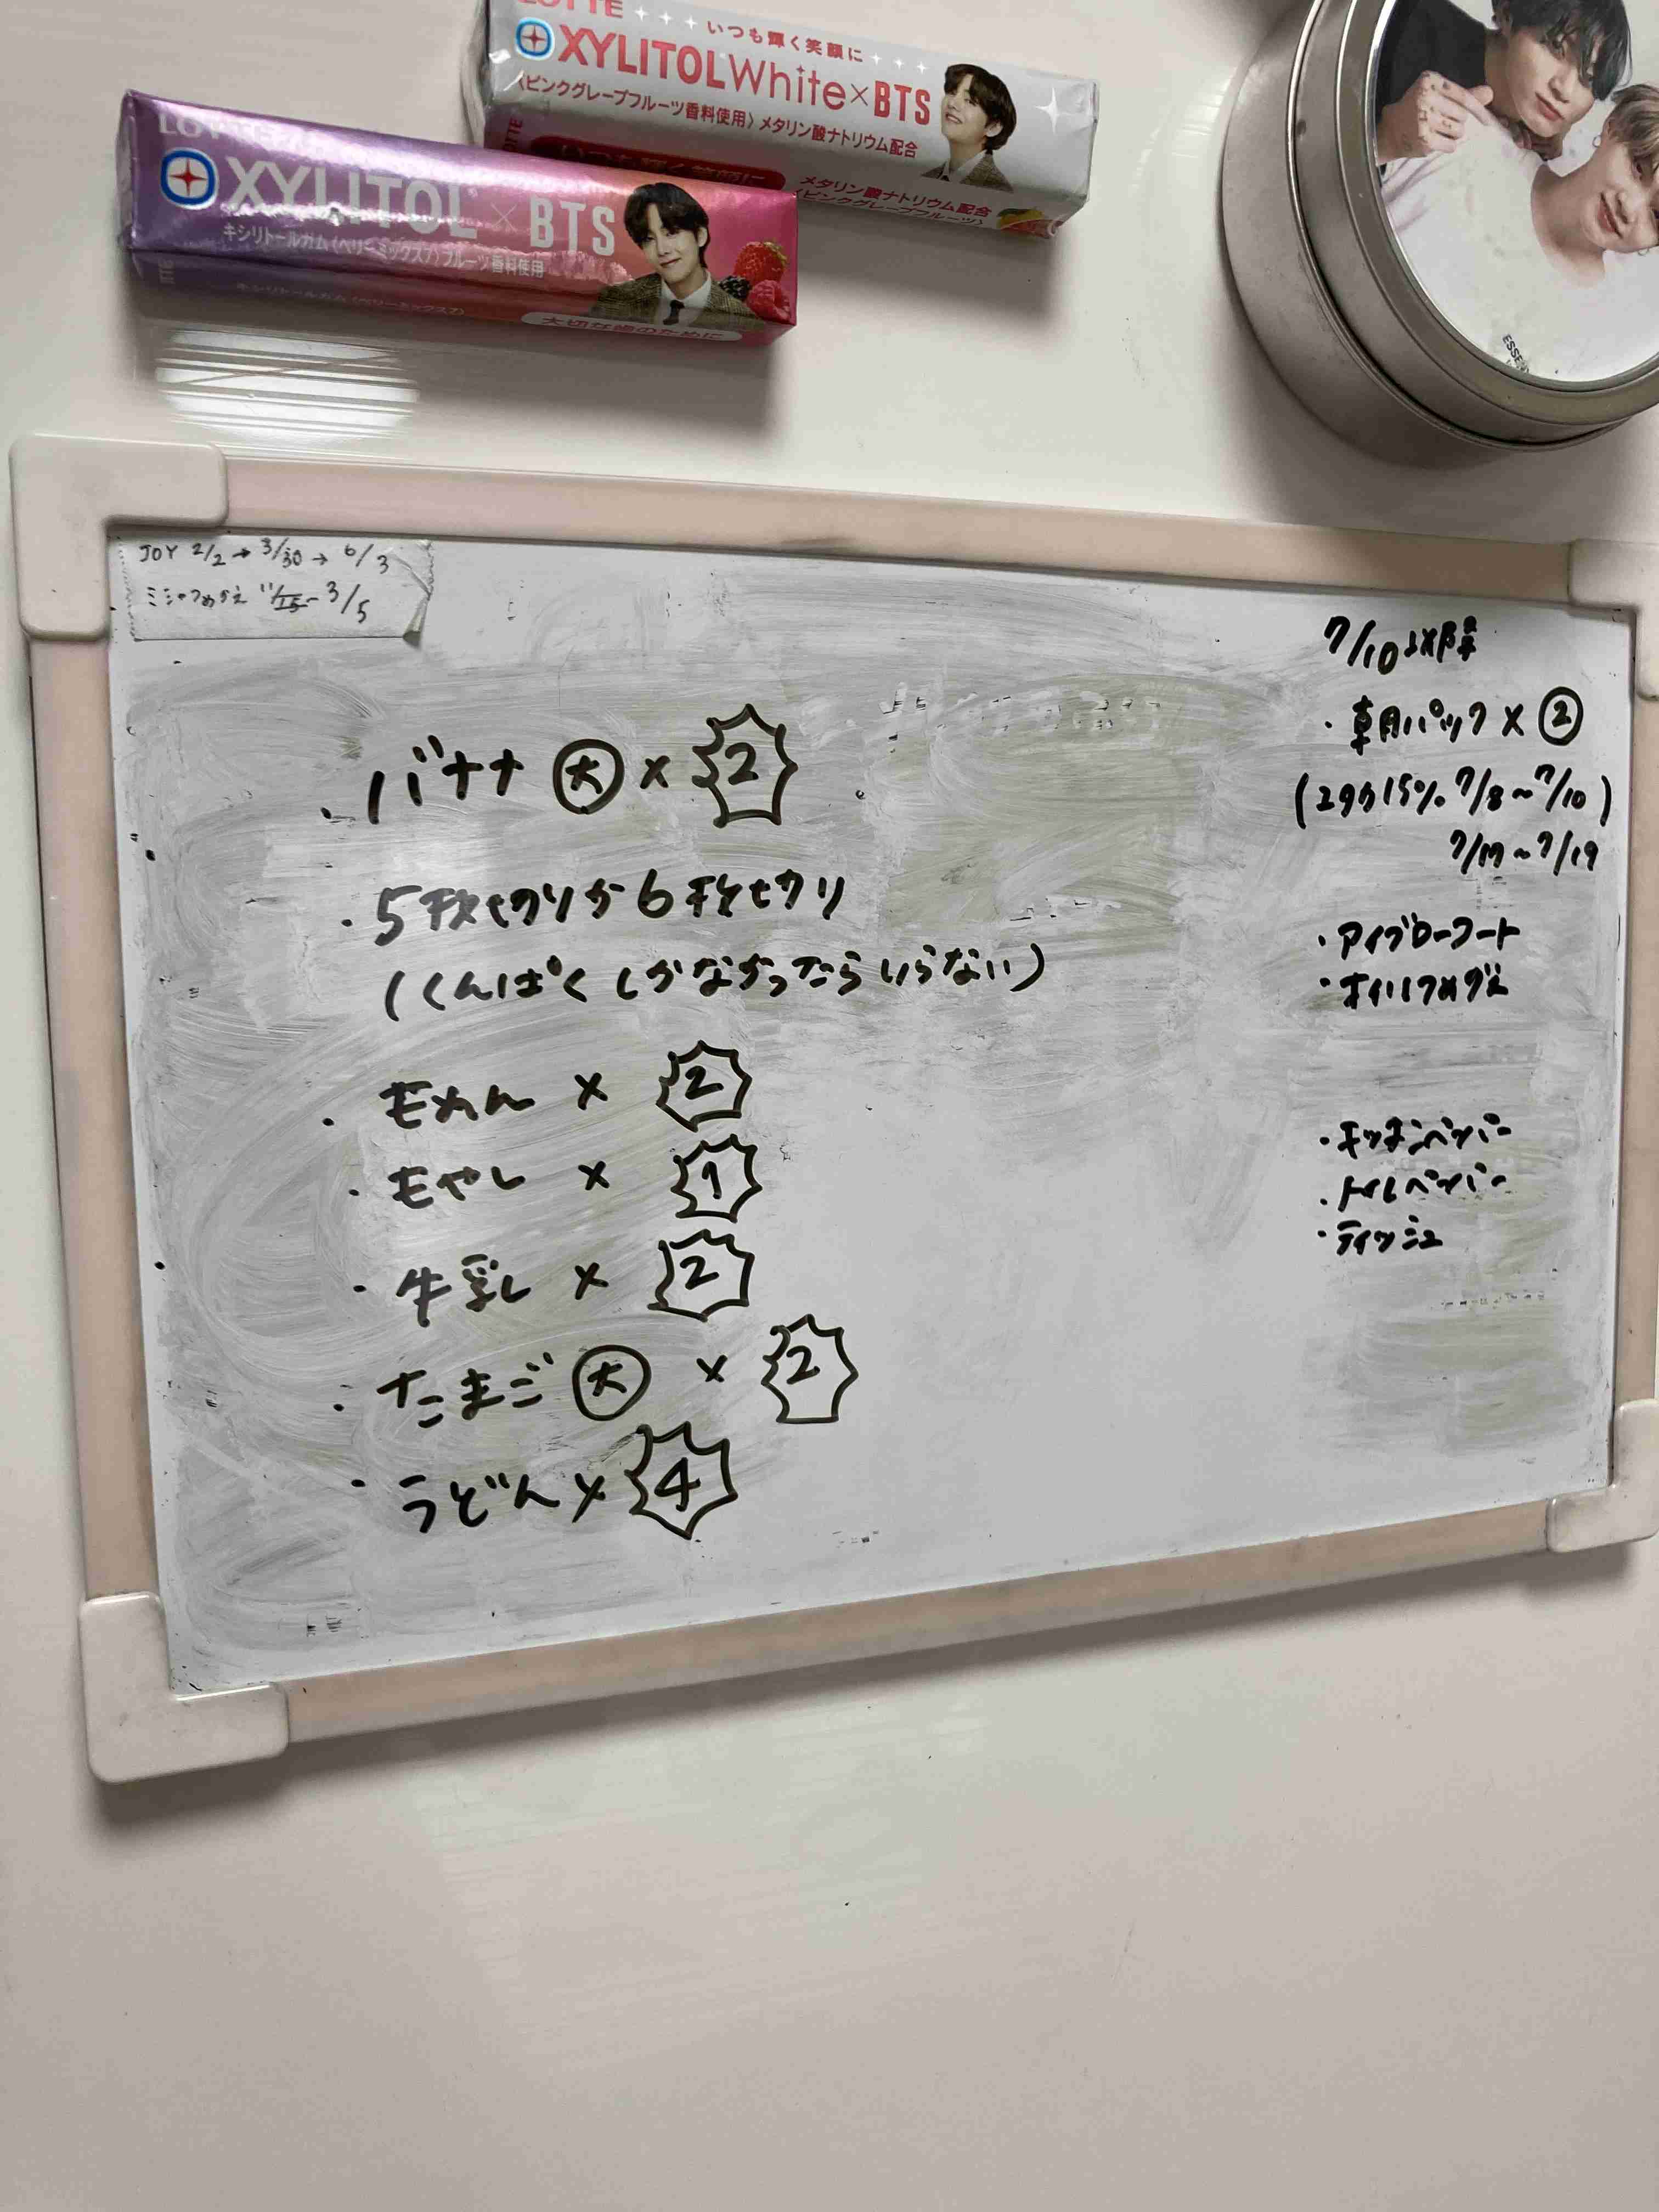 LOTTE
いつも輝く笑顔に
XYLITOL White×BTS
〈ピンクグレープフルーツ香料使用〉メタリン酸ナトリウム配合
メタリン酸ナトリウム配合
〈ピンクグレープフルーツ〉
LOTTE
XYLITOL × BTS
キシリトールガム〈ベリーミックス7〉フルーツ香料使用
キシリトールガム〈ベリーミックス7〉
大切な歯のために
JOY 2/2→3/30→6/3
つめかえ 11/15-3/5
・バナナ 大 × 2
・5枚切りか6枚切り
(くんぱくしかなかったらいらない)
・もめん × 2
・もやし × 1
・牛乳 × 2
・たまご 大 × 2
・うどん × 4
7/10以降
・朝用パック × ②
(2個15% 7/8~7/10)
7/17~7/19
・アイブローコート
・オイルつめかえ
・キッチンペーパー
・トイレペーパー
・ティッシュ